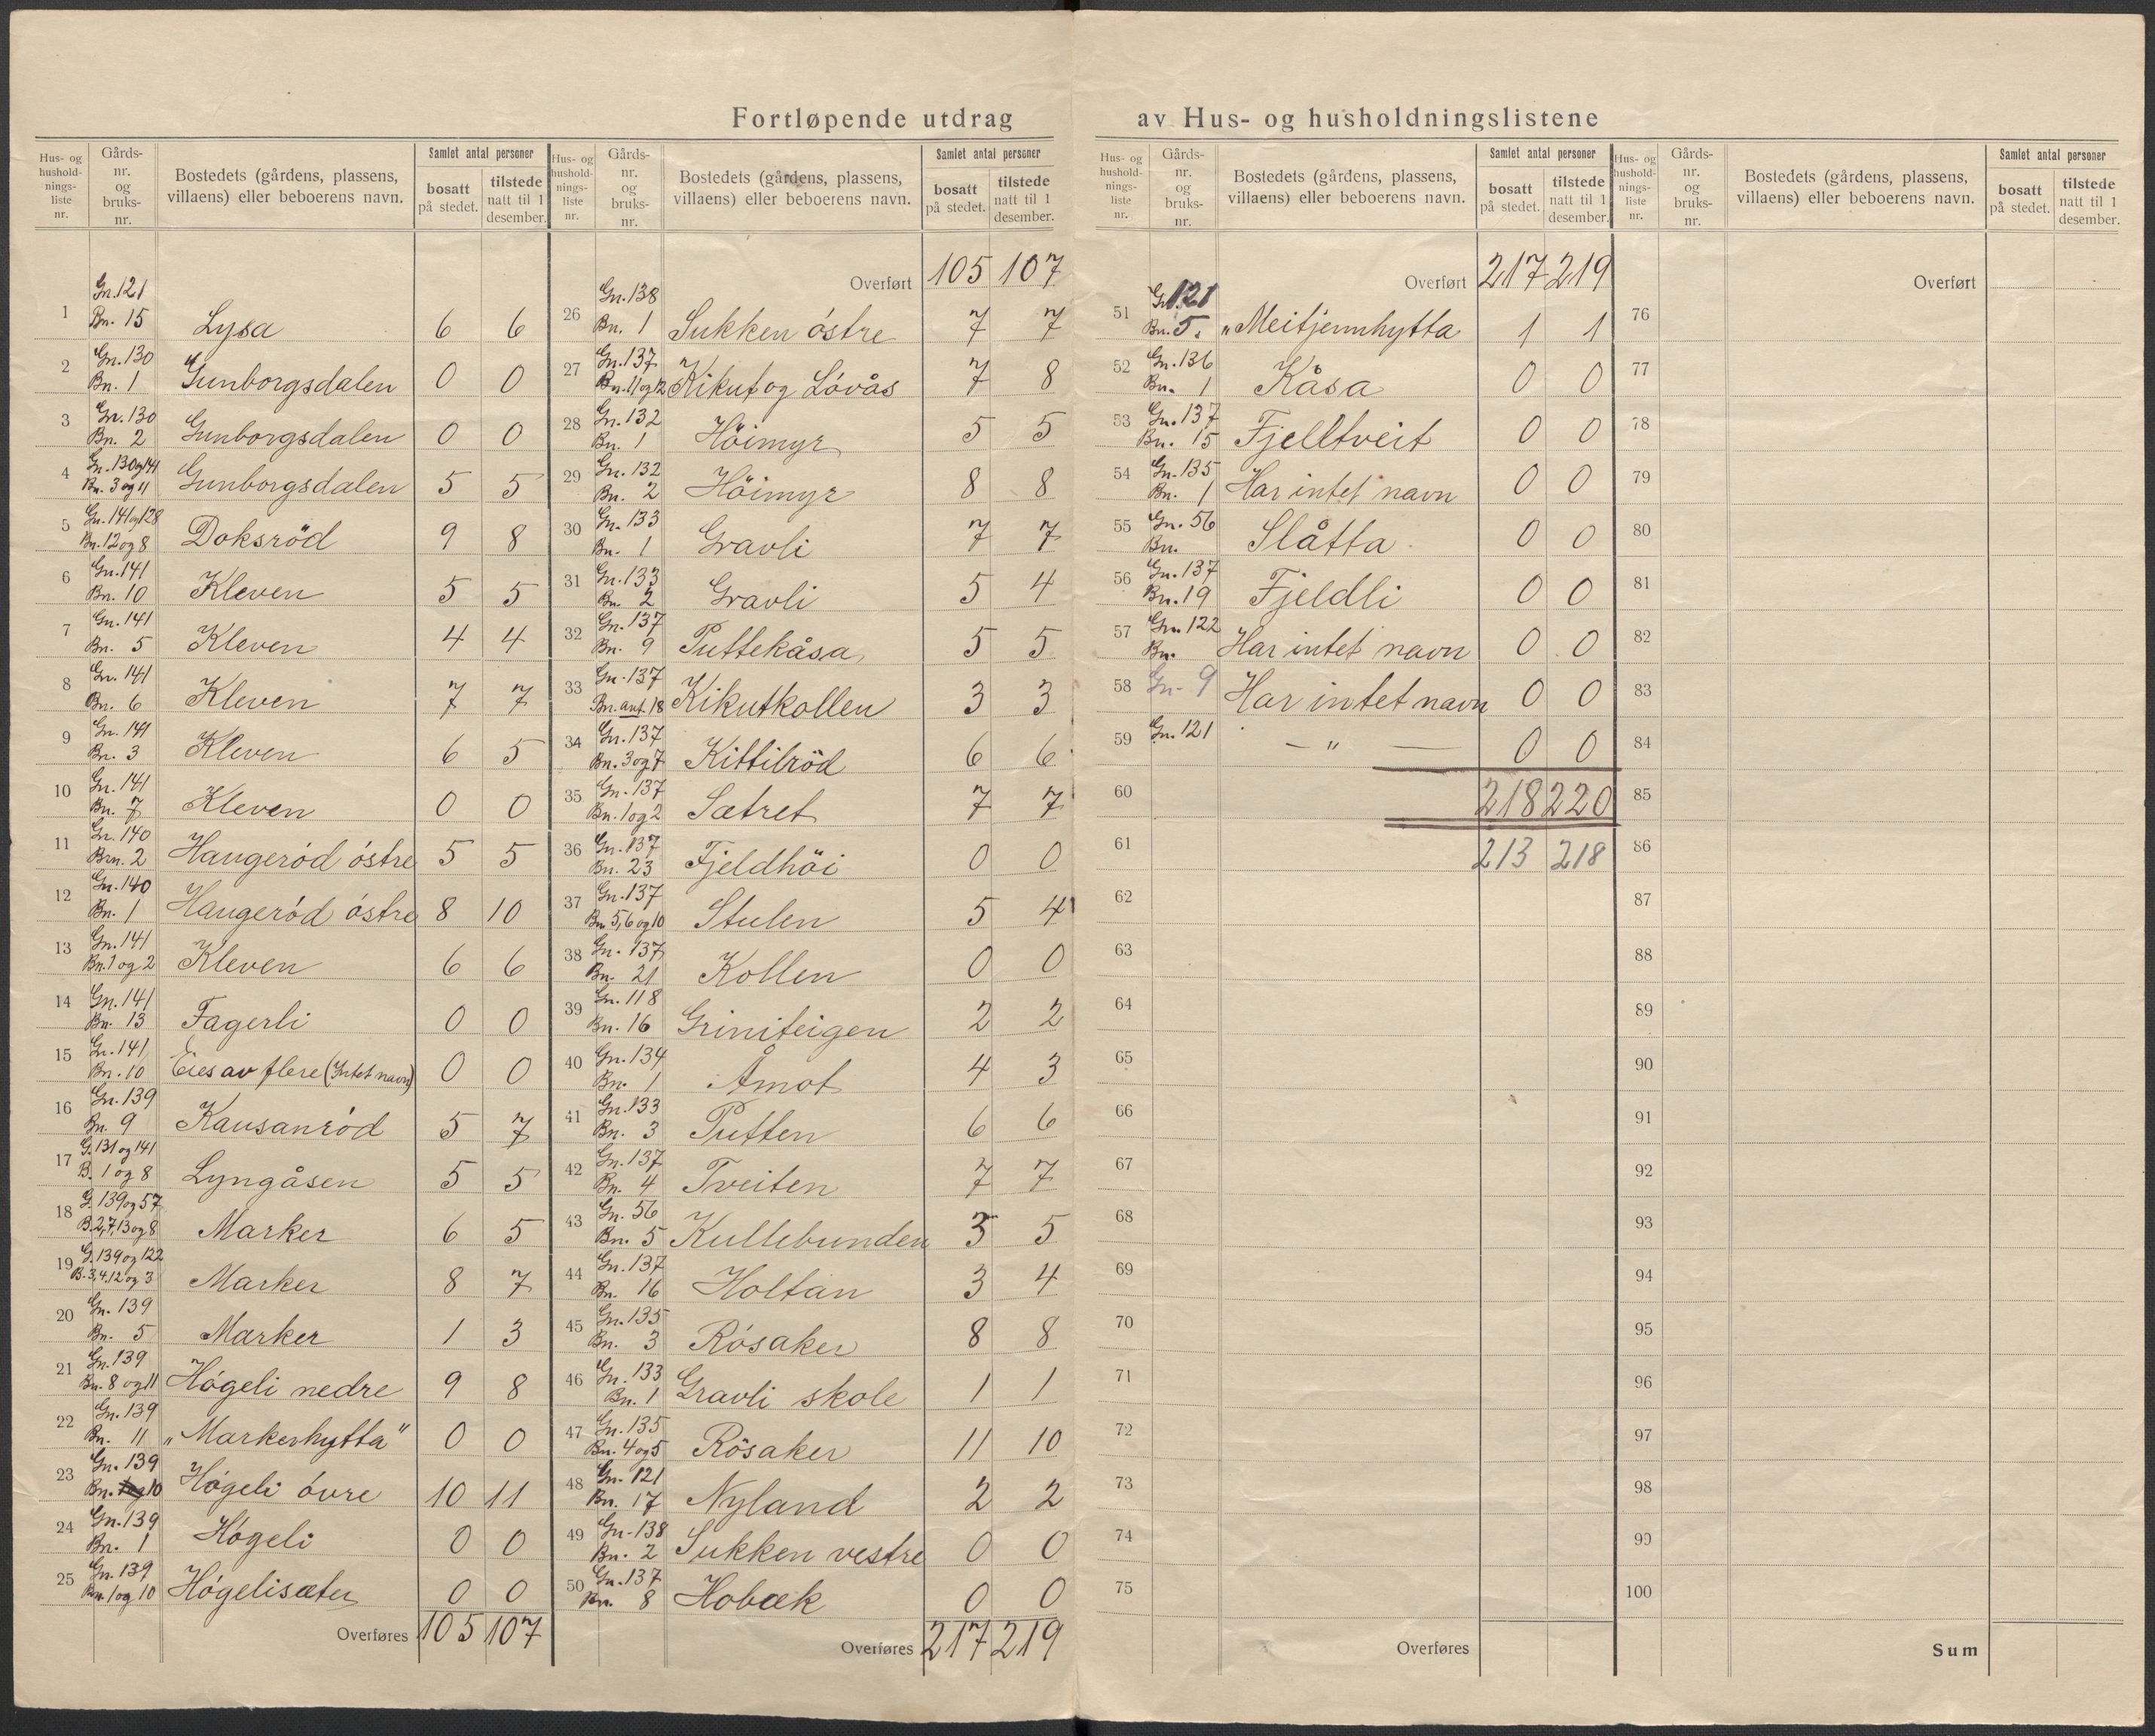 Fortløpende utdrag av Hus- og husholdningslistene
Hus- og husholdnings-liste nr. Gårds-nr. og bruks-nr. Bostedets (gårdens, plassens, villaens) eller beboerens navn. Samlet antal personer bosatt på stedet. tilstede natt til 1 desember.
1 Gn. 121 Bn. 15 Lysa 6 6
2 Gn. 130 Bn. 1 Gunborgsdalen 0 0
3 Gn. 130 Bn. 2 Gunborgsdalen 0 0
4 Gn. 130 og 141 Bn. 3 og 11 Gunborgsdalen 5 5
5 Gn. 141 og 128 Bn. 12 og 8 Doksröd 9 8
6 Gn. 141 Bn. 10 Kleven 5 5
7 Gn. 141 Bn. 5 Kleven 4 4
8 Gn. 141 Bn. 6 Kleven 7 7
9 Gn. 141 Bn. 3 Kleven 6 5
10 Gn. 141 Bn. 7 Kleven 0 0
11 Gn. 140 Bn. 2 Haugeród óstre 5 5
12 Gn. 140 Bn. 1 Haugeród óstre 8 10
13 Gn. 141 Bn. 1 og 2 Kleven 6 6
14 Gn. 141 Bn. 13 Fagerli 0 0
15 Gn. 141 Bn. 10 Eies av flere (Intet navn) 0 0
16 Gn. 139 Bn. 9 Kausanród 5 7
17 G. 131 og 141 B. 1 og 8 Lyngåsen 5 5
18 G. 139 og 57 B. 2, 7, 13 og 8 Marker 6 5
19 G. 139 og 122 B. 3, 4, 12 og 3 Marker 8 7
20 Gn. 139 Bn. 5 Marker 1 3
21 Gn. 139 Bn. 8 og 11 Hógeli nedre 9 8
22 Gn. 139 Bn. 11 „Markerhytta" 0 0
23 Gn. 139 Bn. 10 Hógeli óvre 10 11
24 Gn. 139 Bn. 1 Hógeli 0 0
25 Gn. 139 Bn. 1 og 10 Hógelisæter 0 0
Overføres 105 107
Hus- og husholdnings-liste nr. Gårds-nr. og bruks-nr. Bostedets (gårdens, plassens, villaens) eller beboerens navn. Samlet antal personer bosatt på stedet. tilstede natt til 1 desember.
Overført 105 107
26 Gn. 138 Bn. 1 Sukken óstre 7 7
27 Gn. 137 Bn. 11 og 12 Kikut og Lóvås 7 8
28 Gn. 132 Bn. 1 Höimyr 5 5
29 Gn. 132 Bn. 2 Höimyr 8 8
30 Gn. 133 Bn. 1 Gravli 7 7
31 Gn. 133 Bn. 2 Gravli 5 4
32 Gn. 137 Bn. 9 Puttekåsa 5 5
33 Gn. 137 Bn. ant. 18 Kikutkollen 3 3
34 Gn. 137 Bn. 3 og 7 Kittilröd 6 6
35 Gn. 137 Bn. 1 og 2 Sætret 7 7
36 Gn. 137 Bn. 23 Fjeldhöi 0 0
37 Gn. 137 Bn. 5, 6 og 10 Stulen 5 4
38 Gn. 137 Bn. 21 Kollen 0 0
39 Gn. 118 Bn. 16 Griniteigen 2 2
40 Gn. 134 Bn. 1 Åmot 4 3
41 Gn. 133 Bn. 3 Putten 6 6
42 Gn. 137 Bn. 4 Tveiten 7 7
43 Gn. 56 Bn. 5 Kullebunden 3 5
44 Gn. 137 Bn. 16 Holtan 3 4
45 Gn. 135 Bn. 3 Rósaker 8 8
46 Gn. 133 Bn. 1 Gravli skole 1 1
47 Gn. 135 Bn. 4 og 5 Rösaker 11 10
48 Gn. 121 Bn. 17 Nyland 2 2
49 Gn. 138 Bn. 2 Sukken vestre 0 0
50 Gn. 137 Bn. 8 Hobæk 0 0
Overføres 217 219
Hus- og husholdnings-liste nr. Gårds-nr. og bruks-nr. Bostedets (gårdens, plassens, villaens) eller beboerens navn. Samlet antal personer bosatt på stedet. tilstede natt til 1 desember.
Overført 217 219
51 Gn. 121 Bn. 5. „Meitjennhytta 1 1
52 Gn. 136 Bn. 1 Kåsa 0 0
53 Gn. 137 Bn. 15 Fjelltveit 0 0
54 Gn. 135 Bn. 1 Har intet navn 0 0
55 Gn. 56 Bn. Slåtta 0 0
56 Gn. 137 Bn. 19 Fjeldli 0 0
57 Gn. 122 Bn. Har intet navn 0 0
58 Gn. 9 Har intet navn 0 0
59 Gn. 121 — " — 0 0
60 218 220
61 213 218
62
63
64
65
66
67
68
69
70
71
72
73
74
75
Overføres
Hus- og husholdnings-liste nr. Gårds-nr. og bruks-nr. Bostedets (gårdens, plassens, villaens) eller beboerens navn. Samlet antal personer bosatt på stedet. tilstede natt til 1 desember.
Overført
76
77
78
79
80
81
82
83
84
85
86
87
88
89
90
91
92
93
94
95
96
97
98
99
100
Sum